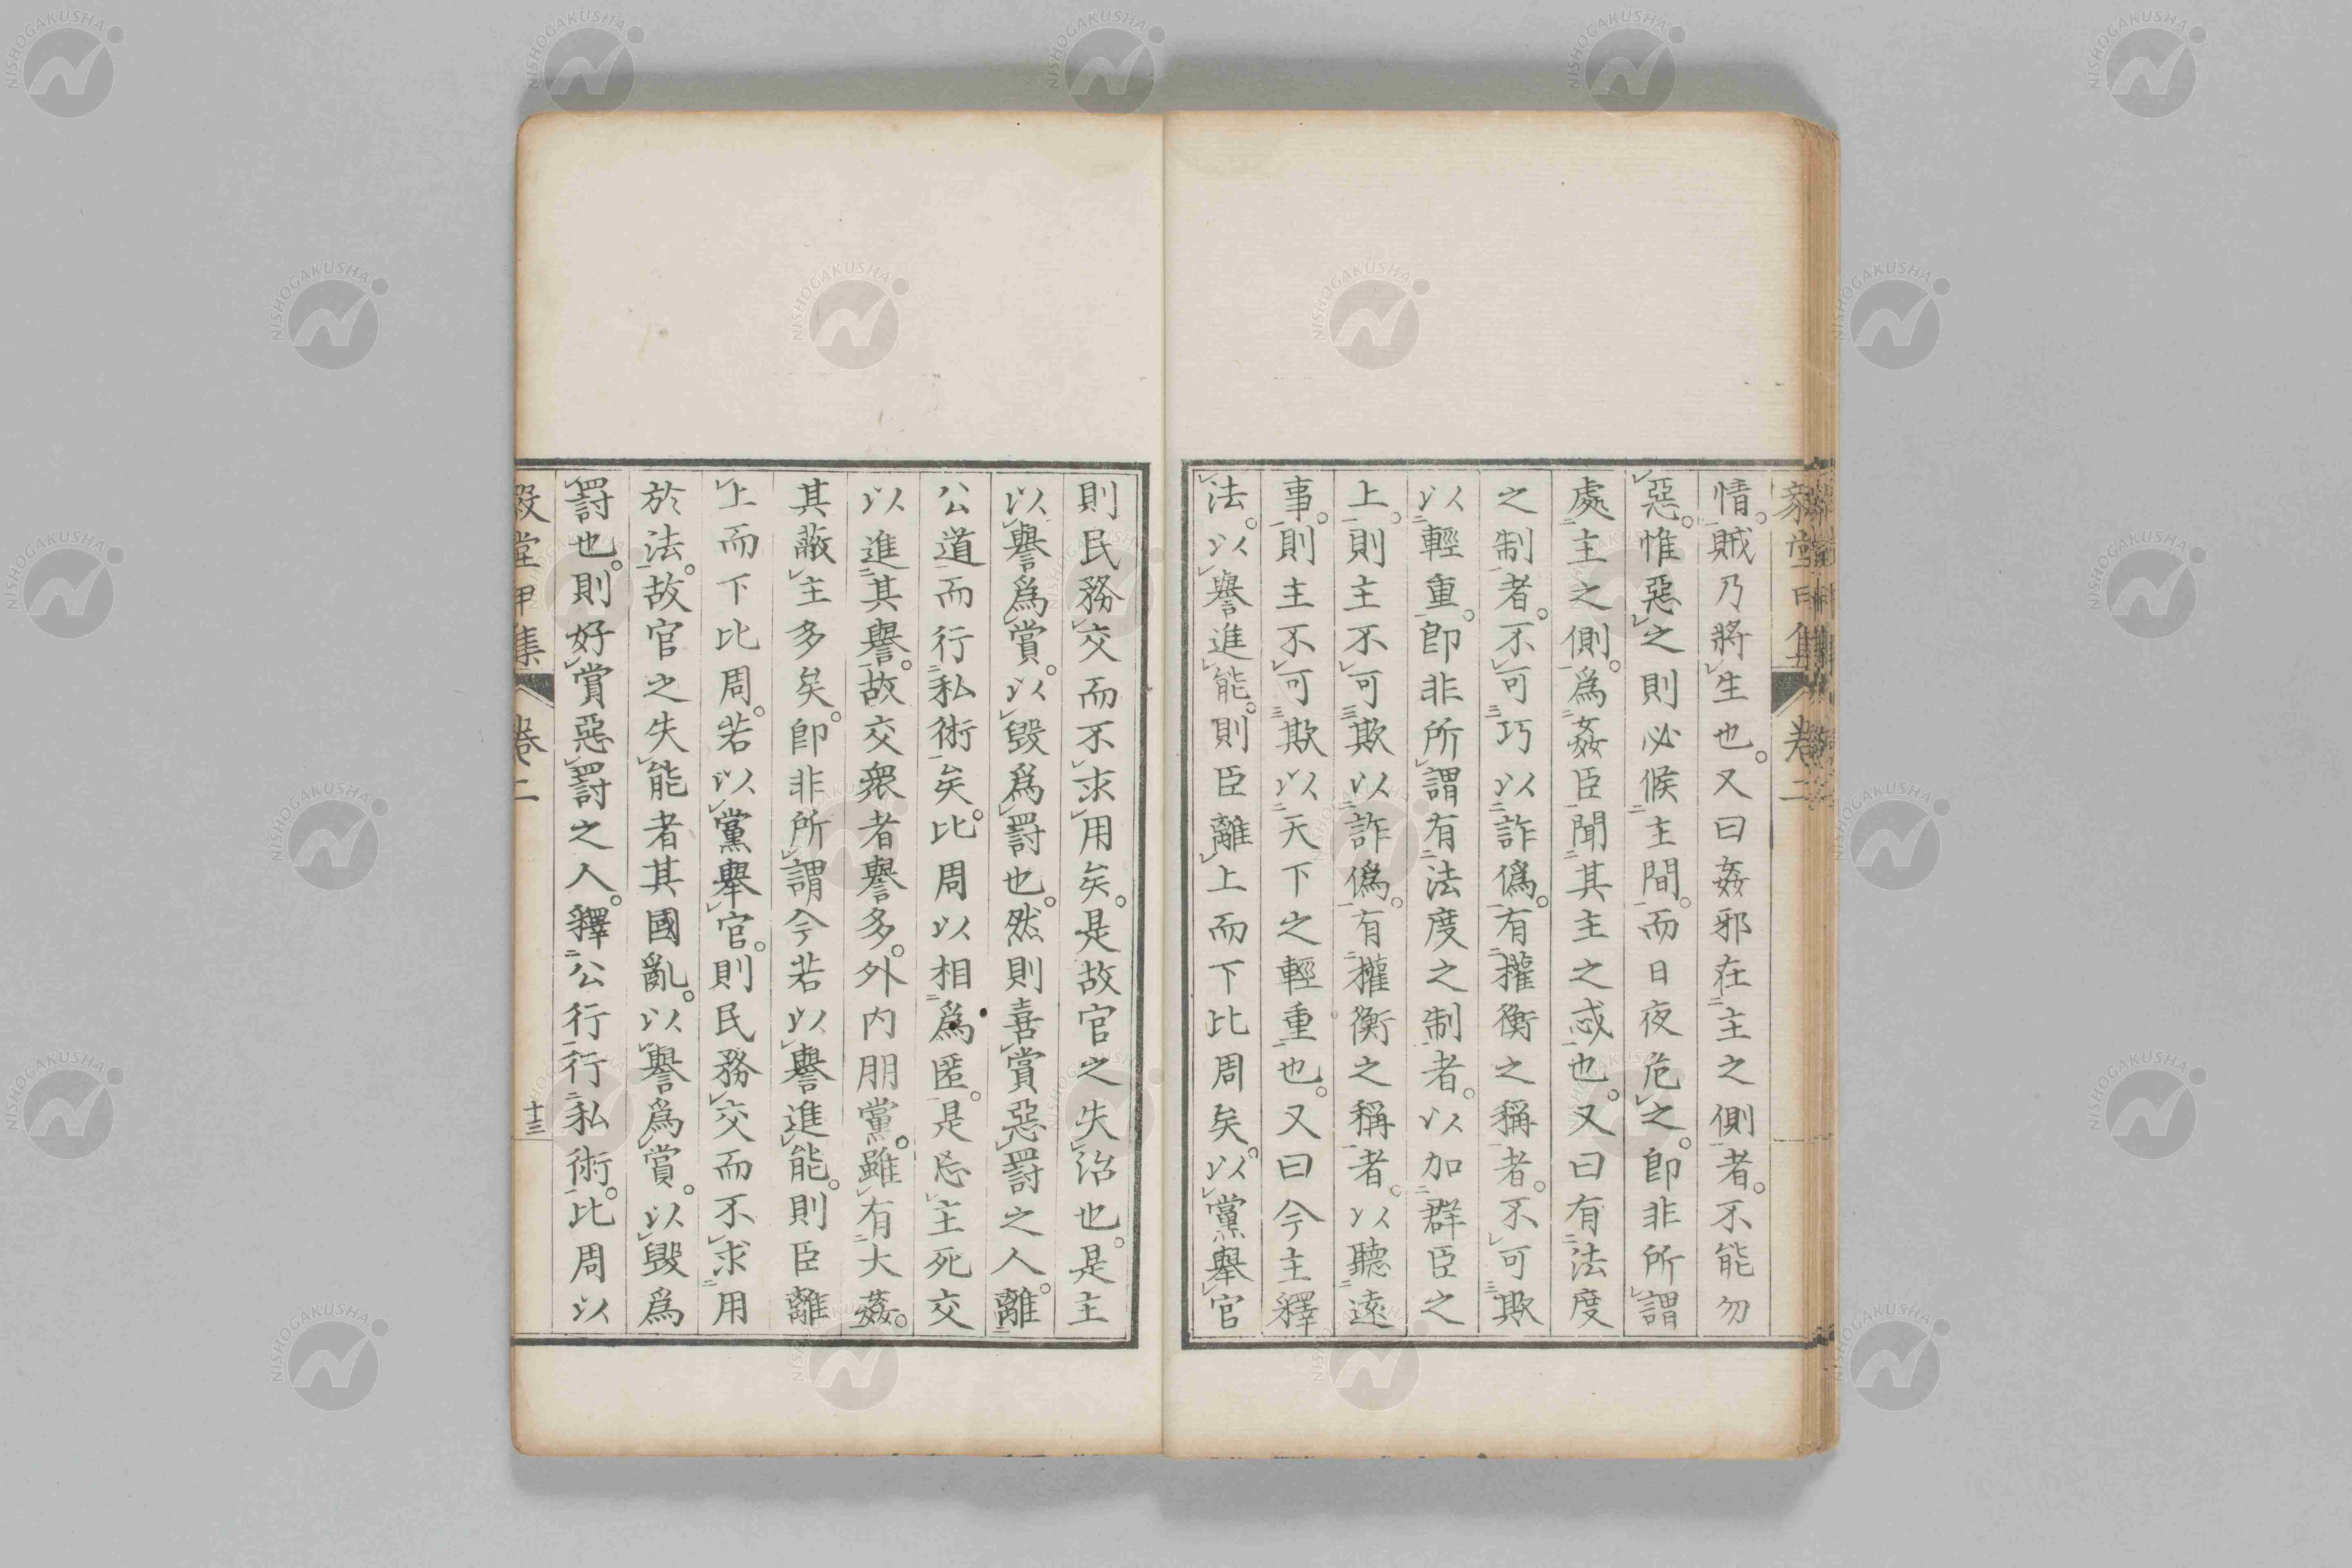 情。賊乃將生也。又曰姦邪在主之側者。不能勿
惡。惟惡之則必候主間。而日夜危之。卽非所謂
處主之側。爲姦臣聞其主之惑也。又曰有法度
之制者。不可巧以詐僞。有權衡之稱者。不可欺
以輕重。卽非所謂有法度之制者。以加群臣之
上。則主不可欺以詐僞。有權衡之稱者。以聽遠
事。則主不可欺以天下之輕重也。又曰今主釋
法。以譽進能。則臣離上而下比周矣。以黨舉官
則民務交而不求用矣。是故官之失治也。是主
以譽爲賞。以毀爲罰也。然則喜賞惡罰之人。離
公道而行私術矣。比周以相爲匿。是忘主死交
以進其譽。故交衆者譽多。外內朋黨。雖有大姦。
其蔽主多矣。卽非所謂今若以譽進能。則臣離
上而下比周。若以黨舉官。則民務交而不求用
於法。故官之失能者其國亂。以譽爲賞。以毀爲
罰也。則好賞惡罰之人。釋公行行私術。比周以
毅堂甲集
卷二
十三
NISHOGAKUSHA